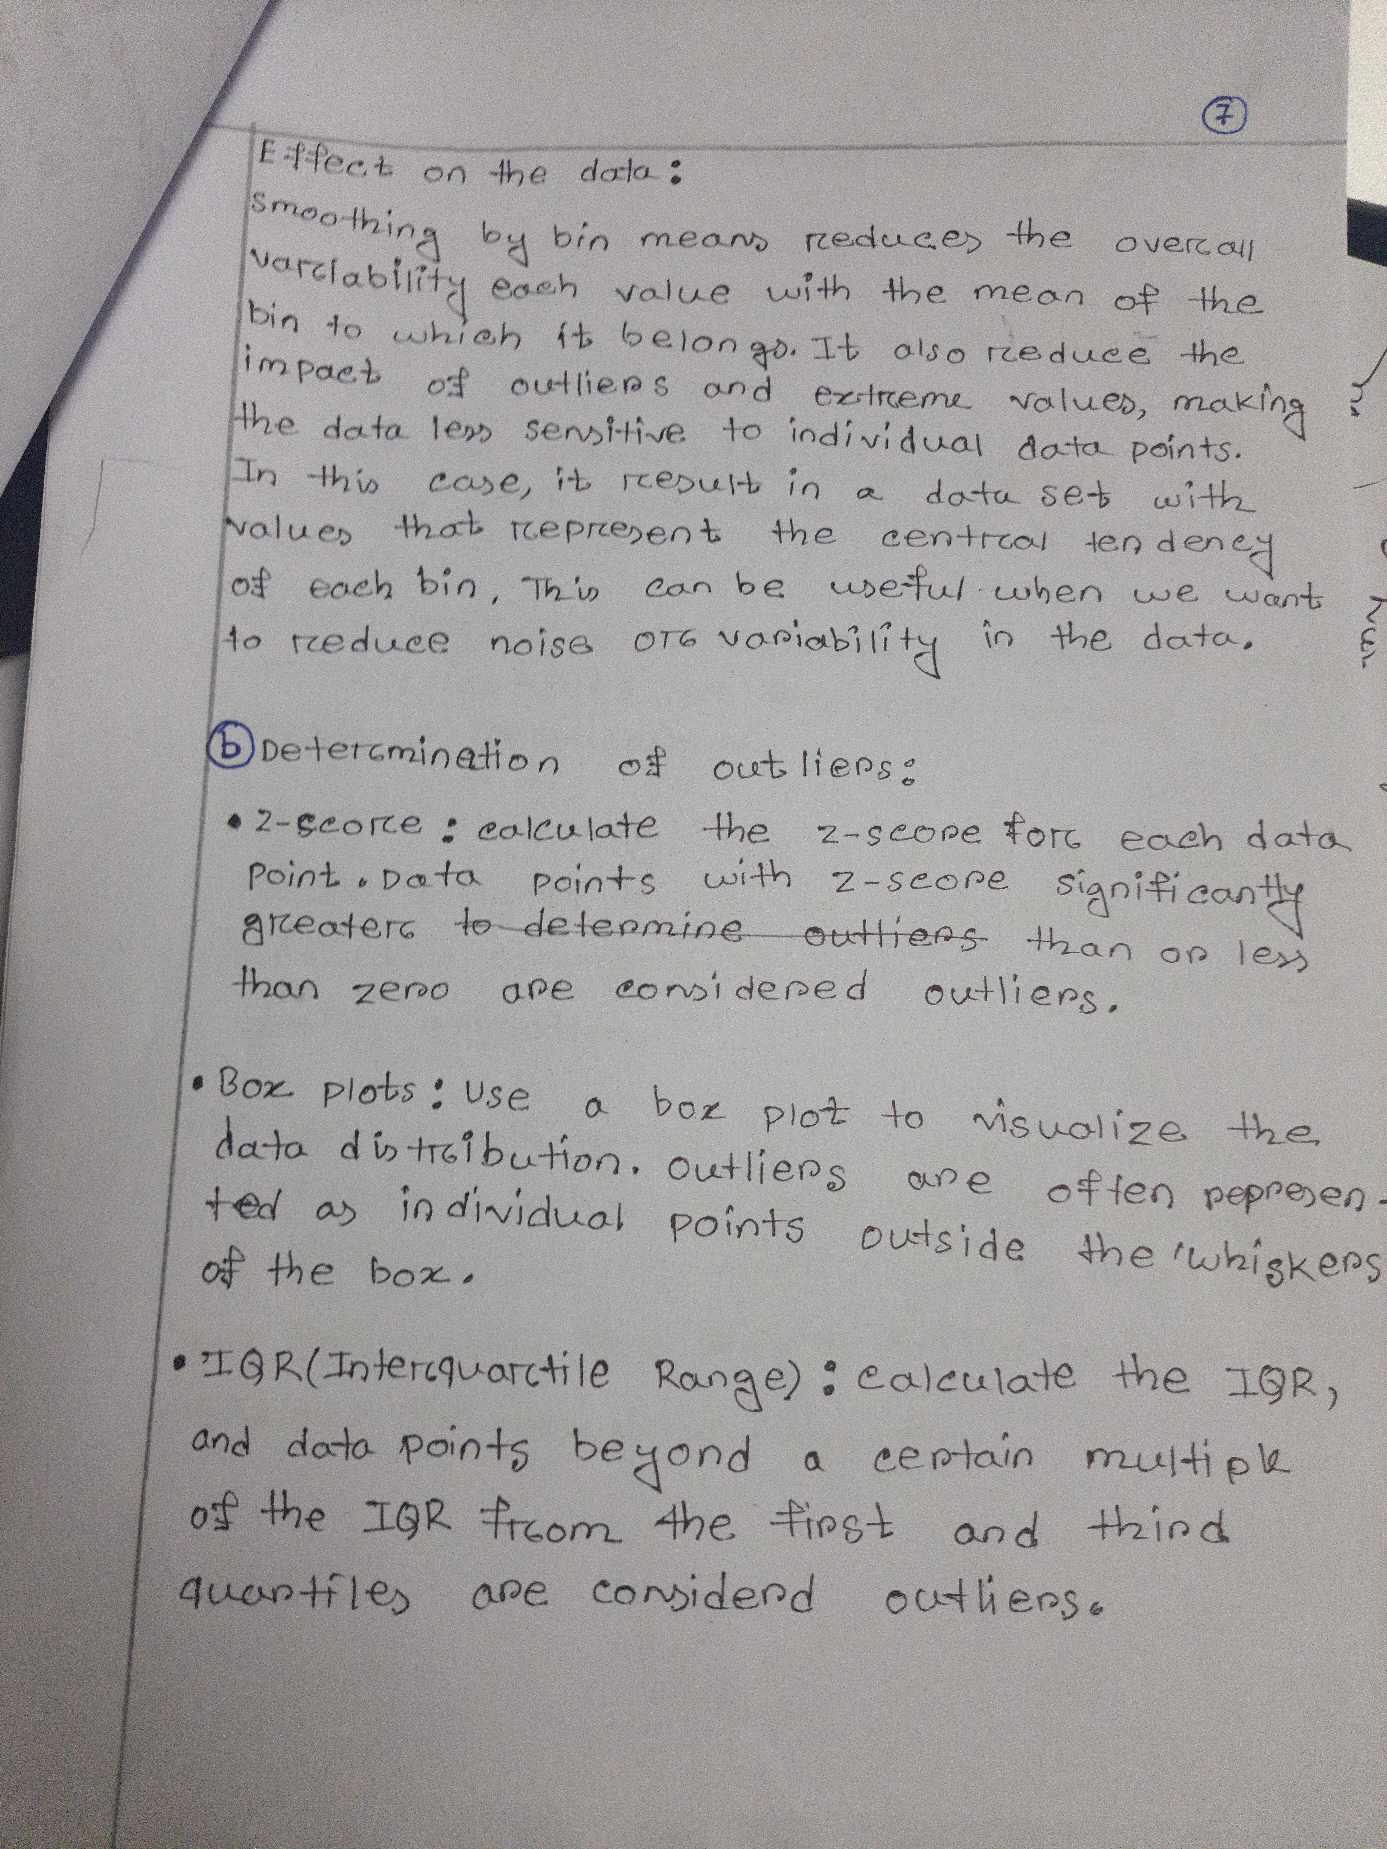 7
Effect on the data:
Smoothing by bin means reduces the overall
variability each value with the mean of the
bin to which it belongs. It also reduce the
impact of outliers and extreme values, making
the data less sensitive to individual data points.
In this case, it result in a data set with
values that represent the central tendency
of each bin, This can be useful when we want
to reduce noise or variability in the data.
b Determination of outliers:
• Z-score: calculate the z-score for each data
point. Data points with z-score significantly
greater to determine outliers than or less
than zero are considered outliers.
• Box plots: Use a box plot to visualize the
data distribution. Outliers are often represen-
ted as individual points outside the "whiskers
of the box.
• IQR (Interquartile Range): calculate the IQR,
and data points beyond a certain multiple
of the IQR from the first and third
quartiles are considerd outliers.